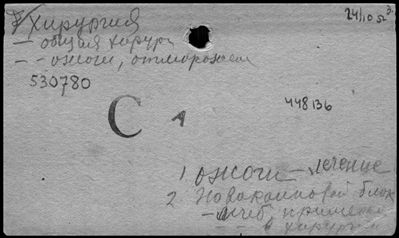 Хирургия 24/10 52
— общая хирург
— - ожоги, отморожен
530780
448136
С А
1 ожоги — лечение
2. Новокаиновой блок
— леч. применен
— - в хирург